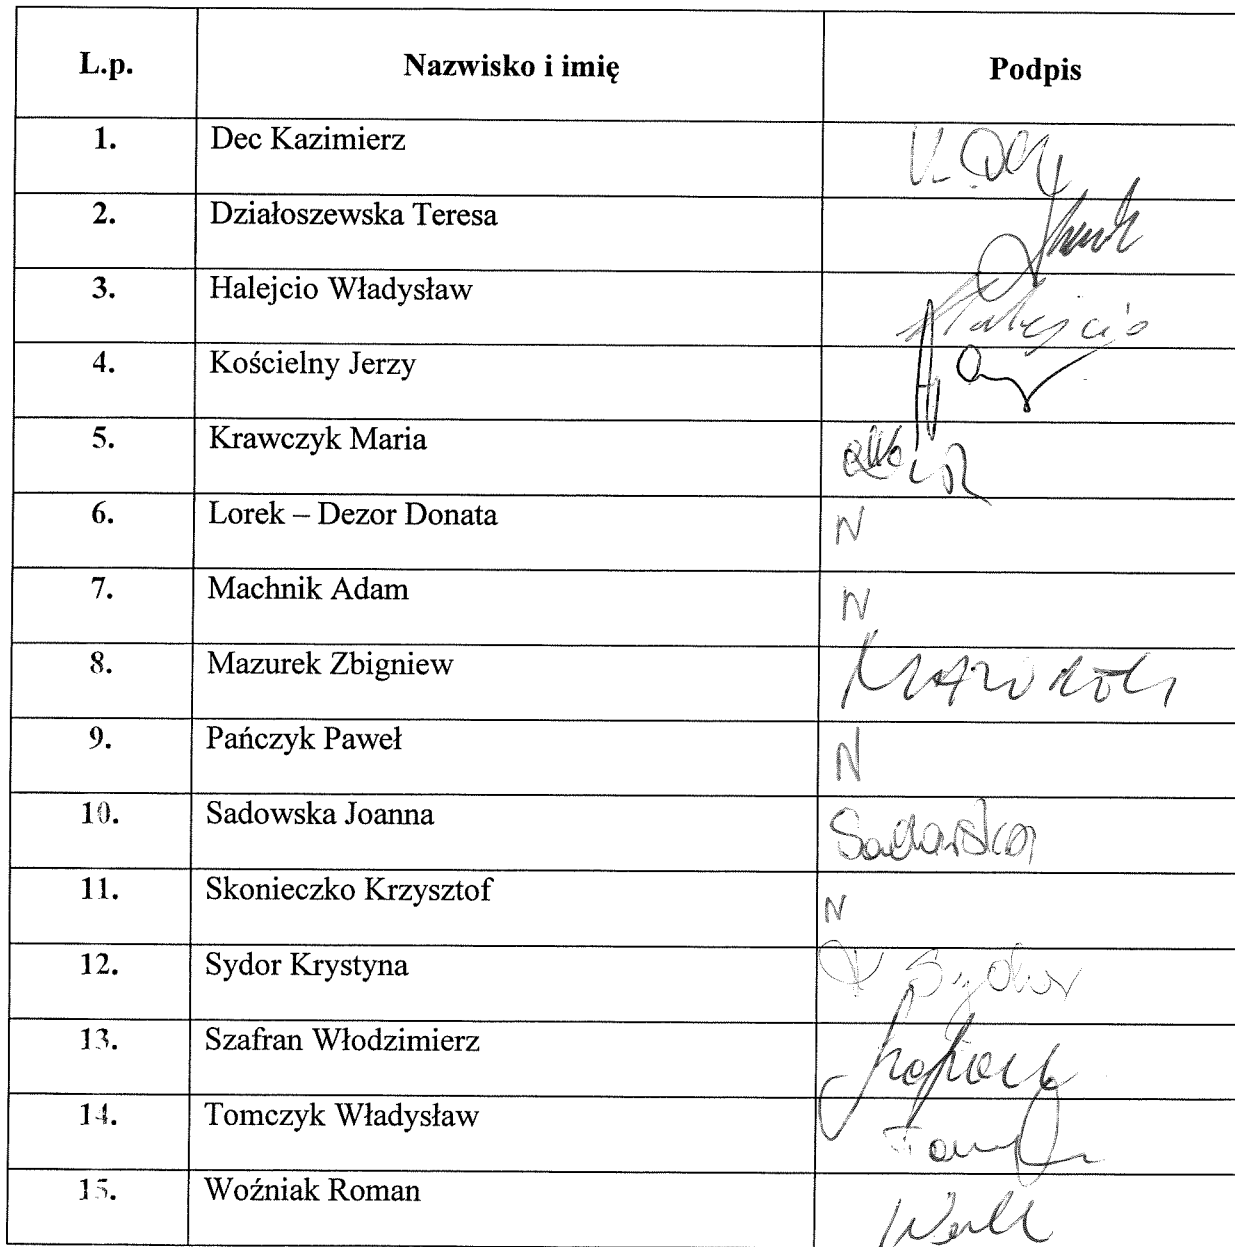 L.p. Nazwisko i imię Podpis
1. Dec Kazimierz K. Dec
2. Działoszewska Teresa
3. Halejcio Władysław Halejcio
4. Kościelny Jerzy
5. Krawczyk Maria
6. Lorek – Dezor Donata N
7. Machnik Adam N
8. Mazurek Zbigniew Mazurek
9. Pańczyk Paweł N
10. Sadowska Joanna Sadowska
11. Skonieczko Krzysztof N
12. Sydor Krystyna K Sydor
13. Szafran Włodzimierz
14. Tomczyk Władysław
15. Woźniak Roman